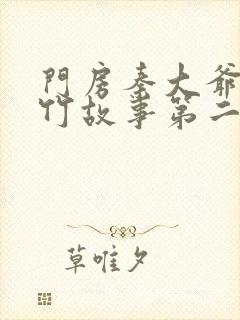 門房秦大爺
竹故事第二
草唯夕